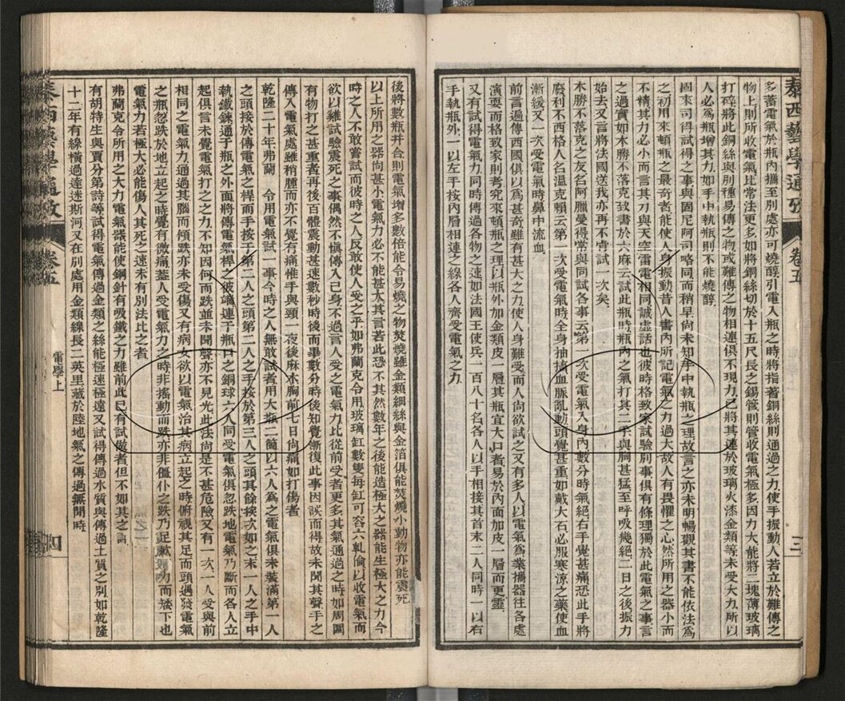 泰西藝學通攷 卷五 三
多蓄電氣於瓶內攜至別處亦可燒醇引電入瓶之時將指著銅絲則通過之力使手振動人若立於難傳之
物上則所收電氣比常法更多如將銅絲切於十五尺長之錫管則管收電氣極多因力大能將二塊薄玻璃
打碎將此銅絲與別種易傳之物或難傳之物相連俱不現力乙將其連於玻璃火漆金類等未受大力所以
人必為瓶增其力如手中執瓶則不能燒醇
國末司得試得之事與固尼阿司略同而稍早尚未知手中執瓶之理故言之亦未明暢觀其書不能依法為
之初用來頓瓶之最奇者能使人身振動昔人書內所記電氣之力過大故人有畏懼之心然所用之器小而
不精其力必小而言其力與天空雷電相同誠虛話也彼時格致家試驗別事俱有條理獨於此電氣之事言
之過實如木勝不落克致書於六麻云試此瓶時瓶內之氣打其二手與胸甚猛至呼吸幾絕二日之後振力
始去又言將法國送我亦再不嘗試一次矣
木勝不落克之友名阿臘曼得常與同試各事云第一次受電氣入身內數分時氣絕右手覺甚痛恐此手將
廢利不西格人名溫克頓云第一次受電氣時全身抽搐血脈亂動頭覺甚重如戴大石必服寒涼之藥使血
漸緩又一次受電氣時鼻中流血
前言過傳西國俱以為甚奇雖有甚大之力使人身難受而人尚欲試之又有多人以電氣為業攜器往各處
演耍而格致家則考究來頓瓶之理以瓶外加金類皮一層其瓶宜大口者易於內面加皮一層而更靈
又有試得電氣力同時傳過各物之速如法國王使兵一百八十名各人以手相接其首末二人同時一以右
手執瓶外一以左手按內層相連之線各人齊受電氣之力
後將數瓶并合則電氣增多數倍能令易燒之物焚燒雖金類細絲與金箔俱能焚燒小動物亦能震死
以上所用之器尚甚小電氣力必不能甚大其言若此恐不其然數年之後能造極大之器能生極大之力今
時之人不敢嘗試而彼時之人反敢使人受之乎如弗蘭克令用玻璃缸數隻每缸可容六軋倫以收電氣而
欲以雞試驗震死之事偶然不慎傳入己身不過言人受之電氣力比從前受者更多其氣通過之時如周圍
有物打之甚重者再後百體震動甚速數秒時後而畢數分時後知覺漸復此事因誤而得故未聞其聲手之
傳入電氣處雖稍腫而亦不覺有痛惟手與頸一夜後麻木胸前七日尚痛如打傷者
乾隆二十年弗蘭 令用電氣試一事今時之人無敢試者用大瓶二箇以六人為之電氣俱未裝滿第一人
之頭接於傳電氣之桿而手按于第二人之頭第二人之手按於第三人之頭其餘挨次如之末一人之手中
執鐵鍊通于瓶之外面將傳電氣桿之彼端連于瓶口之銅球六人同受電氣俱忽跌地電氣乃斷而各人立
起俱言未覺電氣打之之力不知因何而跌並未聞聲亦不見光此法尚是不甚危險又有一次一人受與前
相同之電氣力通過其腦而傾跌亦未受傷又有病女欲以電氣治其病立起之時俯視其足而頭遇發電氣
之瓶忽跌於地立起之時覺有微痛蓋人受電氣力之時非搖動而跌亦非僵仆之跌乃足軟弱力而矮下也
電氣力若極大必能傷人其死之速未有別法比之者
弗蘭克令所用之大力電氣器能使鋼針有吸鐵之力雖前此已有試做者但不如其之
有胡特生與賈分第詩等試得電氣傳過金類之絲能極速極遠又試得傳過水質與傳過土質之別如乾隆
十二年有線橫過達迷斯河又在別處用金類線長二英里藏於陸地氣之傳過無間時
泰西藝學通攷 卷五 電學上 四